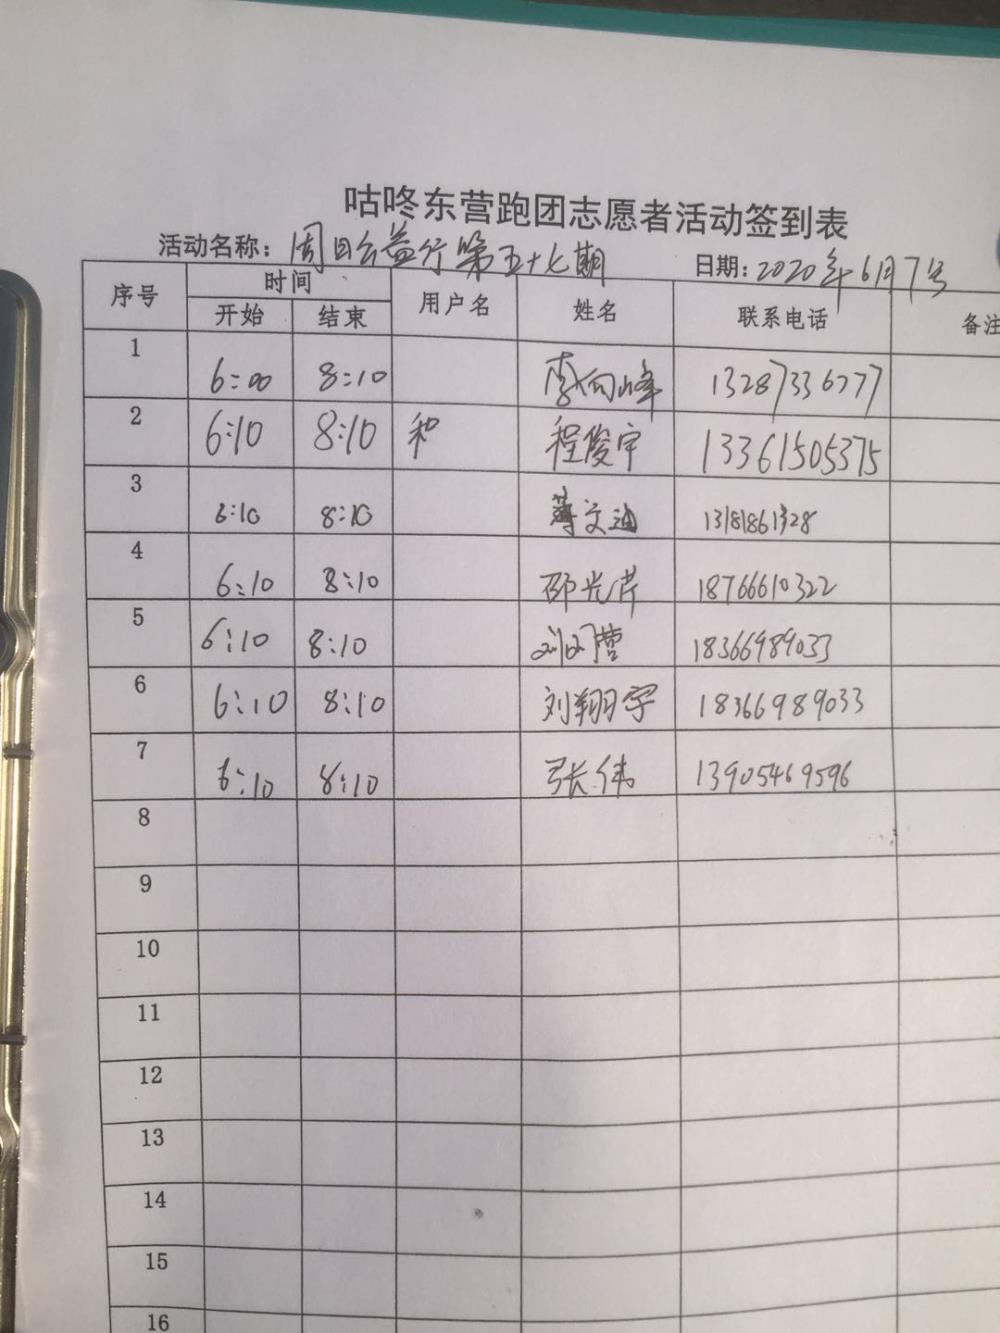 咕咚东营跑团志愿者活动签到表
活动名称：周日公益行第五十七期 日期：2020年6月7号
序号 时间 用户名 姓名 联系电话 备注
开始 结束
1 6:00 8:10 李向峰 13287336777
2 6:10 8:10 和 程俊宇 13361505375
3 6:10 8:10 13181861328
4 6:10 8:10 邵光芹 18766610322
5 6:10 8:10 18366989033
6 6:10 8:10 刘翔宇 18366989033
7 6:10 8:10 张伟 13905469596
8
9
10
11
12
13
14
15
16